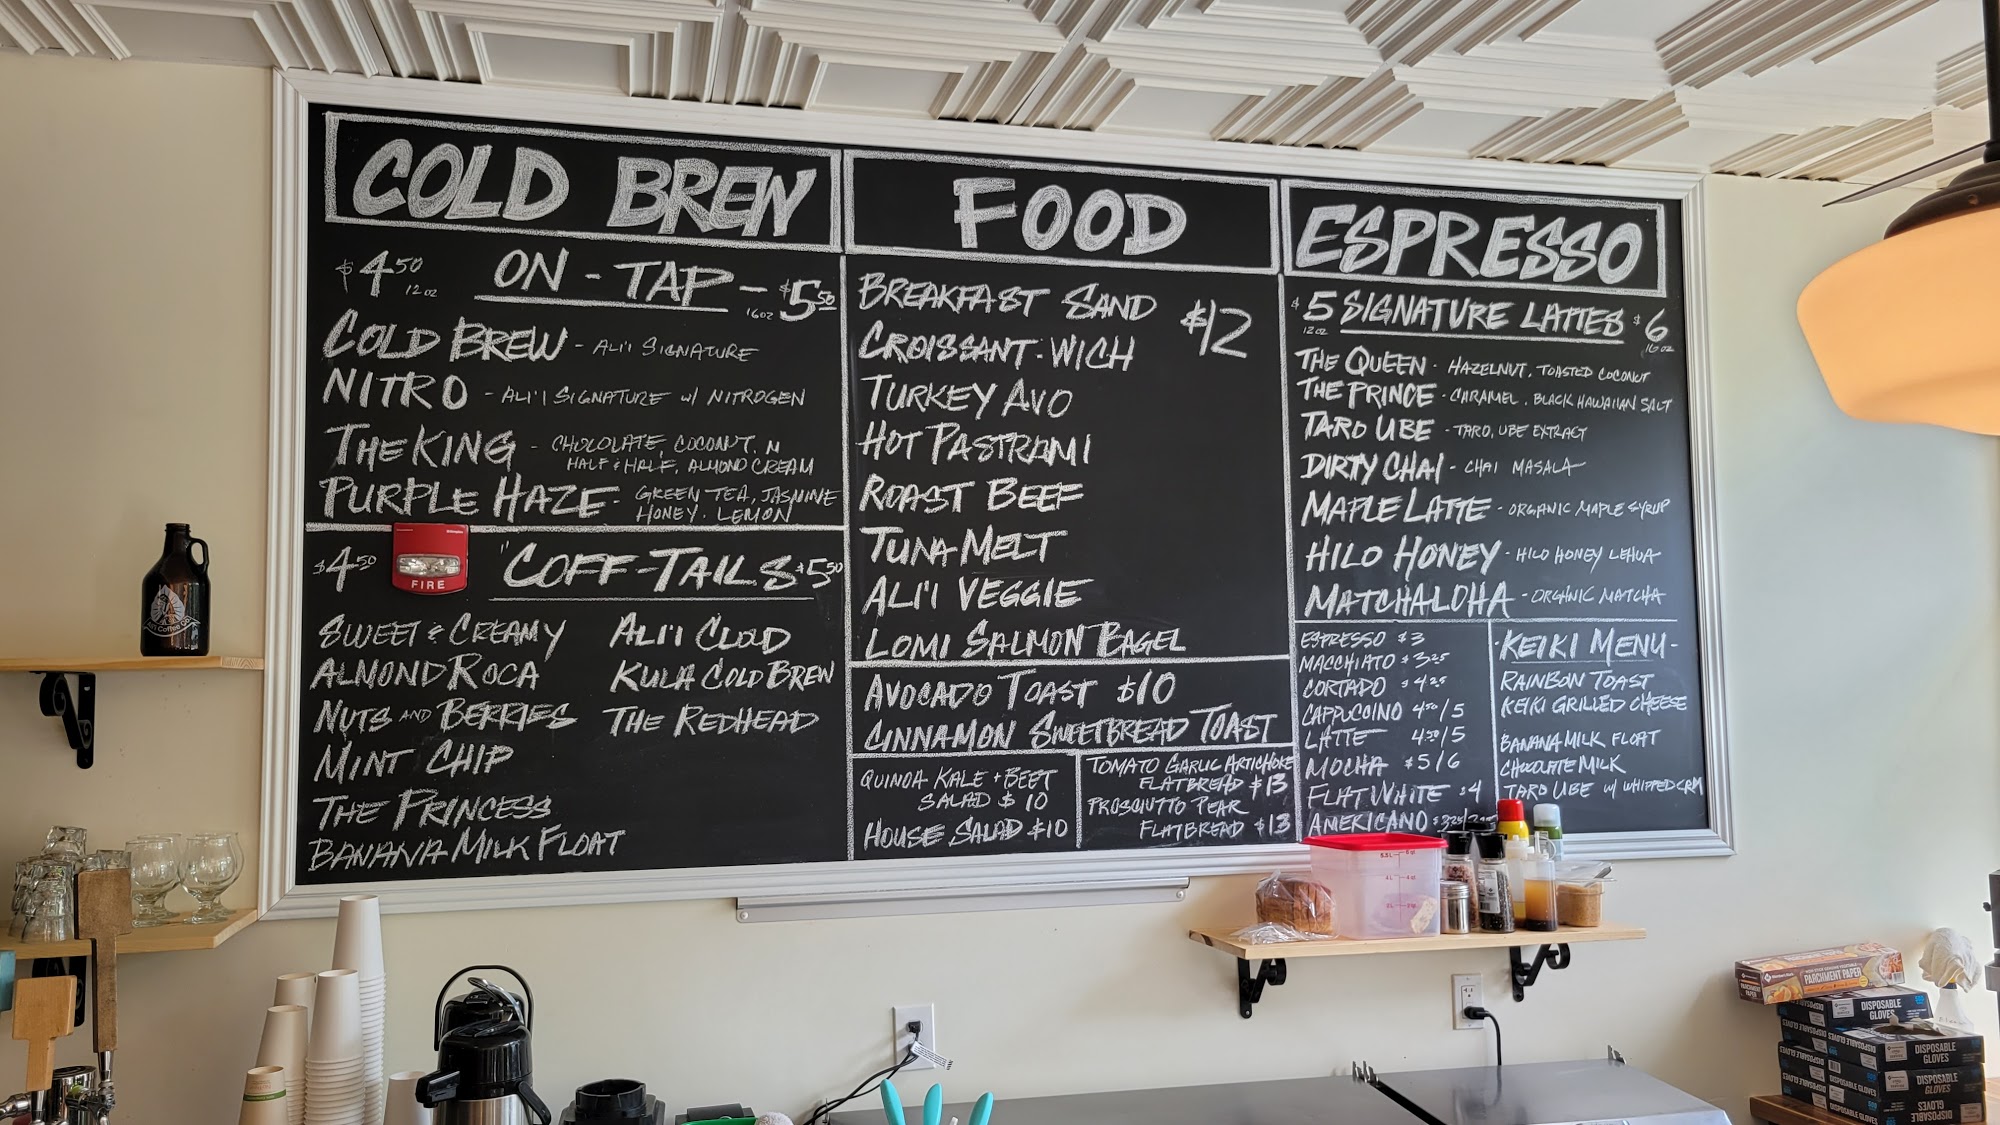 COLD BREW
$4.50 12 oz ON-TAP - $5.50 16 oz
COLD BREW - ALI'I SIGNATURE
NITRO - ALI'I SIGNATURE W/ NITROGEN
THE KING - CHOCOLATE, COCONUT, M
HALF & HALF, ALMOND CREAM
PURPLE HAZE - GREEN TEA, JASMINE
HONEY. LEMON
$4.50 "COFF-TAILS $5.50
FIRE
SWEET & CREAMY
ALMOND ROCA
NUTS AND BERRIES
MINT CHIP
THE PRINCESS
BANANA MILK FLOAT
ALI'I CLOUD
KULA COLD BREW
THE REDHEAD
FOOD
BREAKFAST SAND $12
CROISSANT-WICH
TURKEY AVO
HOT PASTRAMI
ROAST BEEF
TUNA MELT
ALI'I VEGGIE
LOMI SALMON BAGEL
AVOCADO TOAST $10
CINNAMON SWEETBREAD TOAST
QUINOA KALE + BEET
SALAD $10
HOUSE SALAD $10
TOMATO GARLIC ARTICHOKE
FLATBREAD $13
PROSCIUTTO PEAR
FLATBREAD $13
ESPRESSO
$5 12 oz SIGNATURE LATTES $6 16 oz
THE QUEEN - HAZELNUT, TOASTED COCONUT
THE PRINCE - CARAMEL, BLACK HAWAIIAN SALT
TARO UBE - TARO, UBE EXTRACT
DIRTY CHAI - CHAI MASALA
MAPLE LATTE - ORGANIC MAPLE SYRUP
HILO HONEY - HILO HONEY LEHUA
MATCHALOHA - ORGANIC MATCHA
ESPRESSO $3
MACCHIATO $3.25
CORTADO $4.25
CAPPUCCINO 4.50/5
LATTE 4.50/5
MOCHA $5/6
FLAT WHITE $4
AMERICANO
-KEIKI MENU-
RAINBON TOAST
KEIKI GRILLED CHEESE
BANANA MILK FLOAT
CHOCOLATE MILK
TARO UBE W/ WHIPPED CRM
Ali'i Coffee Co
PARCHMENT PAPER
DISPOSABLE GLOVES
DISPOSABLE GLOVES
DISPOSABLE GLOVES
DISPOSABLE GLOVES